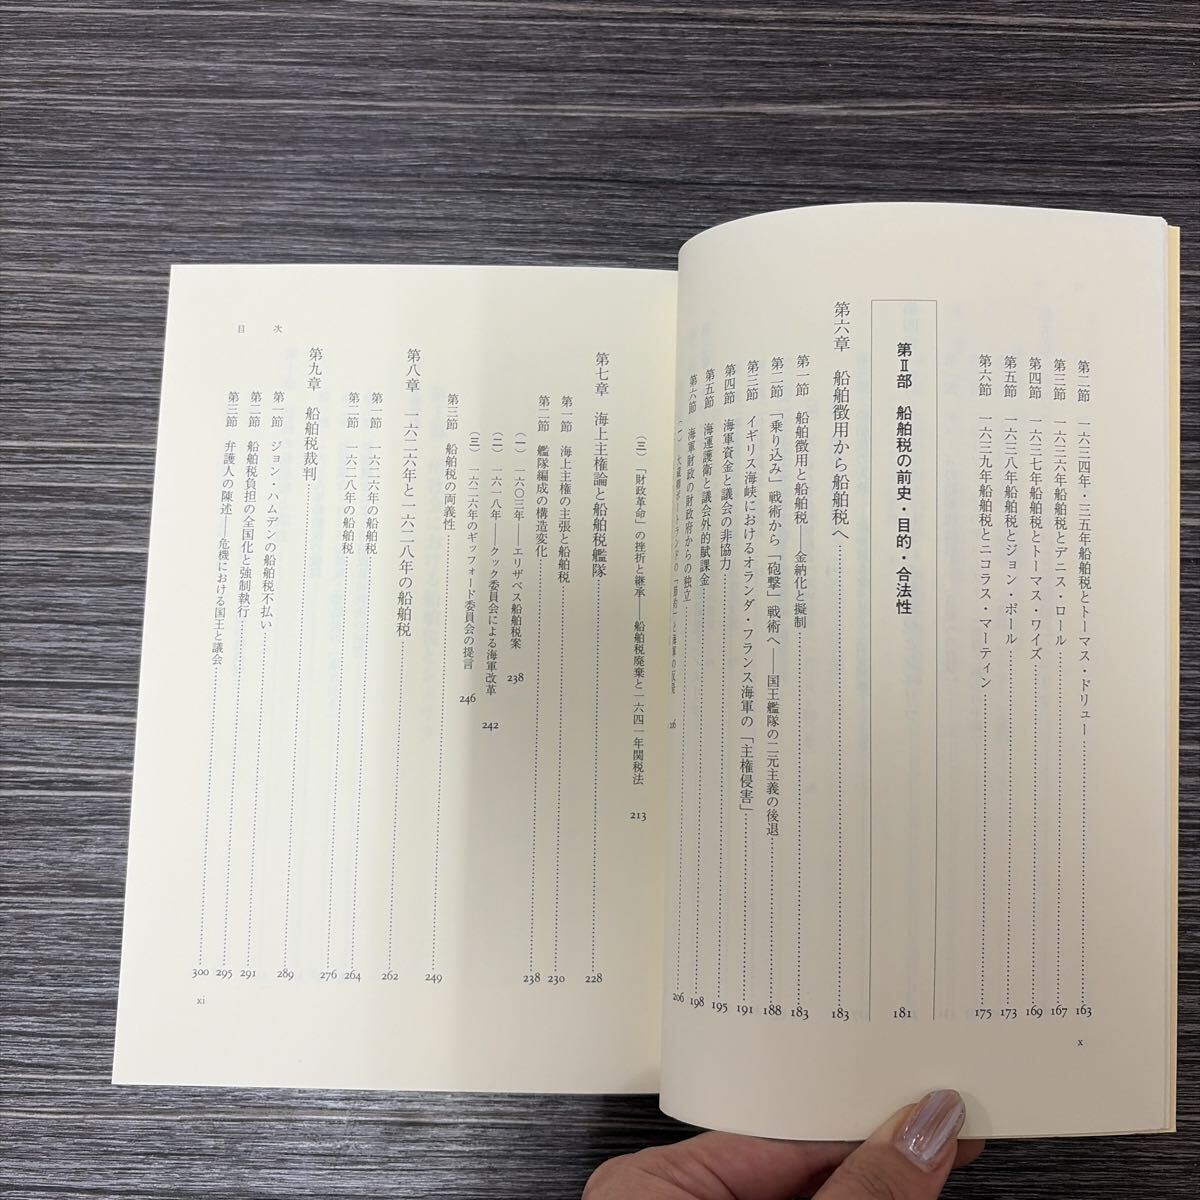 第二節　一六三四年・三五年船舶税とトーマス・ドリュー……163
第三節　一六三六年船舶税とデニス・ロール……167
第四節　一六三七年船舶税とトーマス・ワイズ……169
第五節　一六三八年船舶税とジョン・ポール……173
第六節　一六三九年船舶税とニコラス・マーティン……175
第Ⅱ部　船舶税の前史・目的・合法性……181
第六章　船舶徴用から船舶税へ……183
第一節　船舶徴用と船舶税――金納化と擬制……183
第二節　「乗り込み」戦術から「砲撃」戦術へ――国王艦隊の二元主義の後退……188
第三節　イギリス海峡におけるオランダ・フランス海軍の「主権侵害」……191
第四節　海軍資金と議会の非協力……195
第五節　海運護衛と議会外的賦課金……198
第六節　海軍財政の財政府からの独立……206
x
(三)　「財政革命」の挫折と継承――船舶税廃棄と一六四一年関税法　213
第七章　海上主権論と船舶税艦隊……228
第一節　海上主権の主張と船舶税……230
第二節　艦隊編成の構造変化……238
(一)　一六〇三年――エリザベス船舶税案　238
(二)　一六一八年――クック委員会による海軍改革　242
(三)　一六二六年のギッフォード委員会の提言　246
第三節　船舶税の両義性……249
第八章　一六二六年と一六二八年の船舶税……262
第一節　一六二六年の船舶税……264
第二節　一六二八年の船舶税……276
第九章　船舶税裁判……289
第一節　ジョン・ハムデンの船舶税不払い……291
第二節　船舶税負担の全国化と強制執行……295
第三節　弁護人の陳述――危機における国王と議会……300
目　次
xi